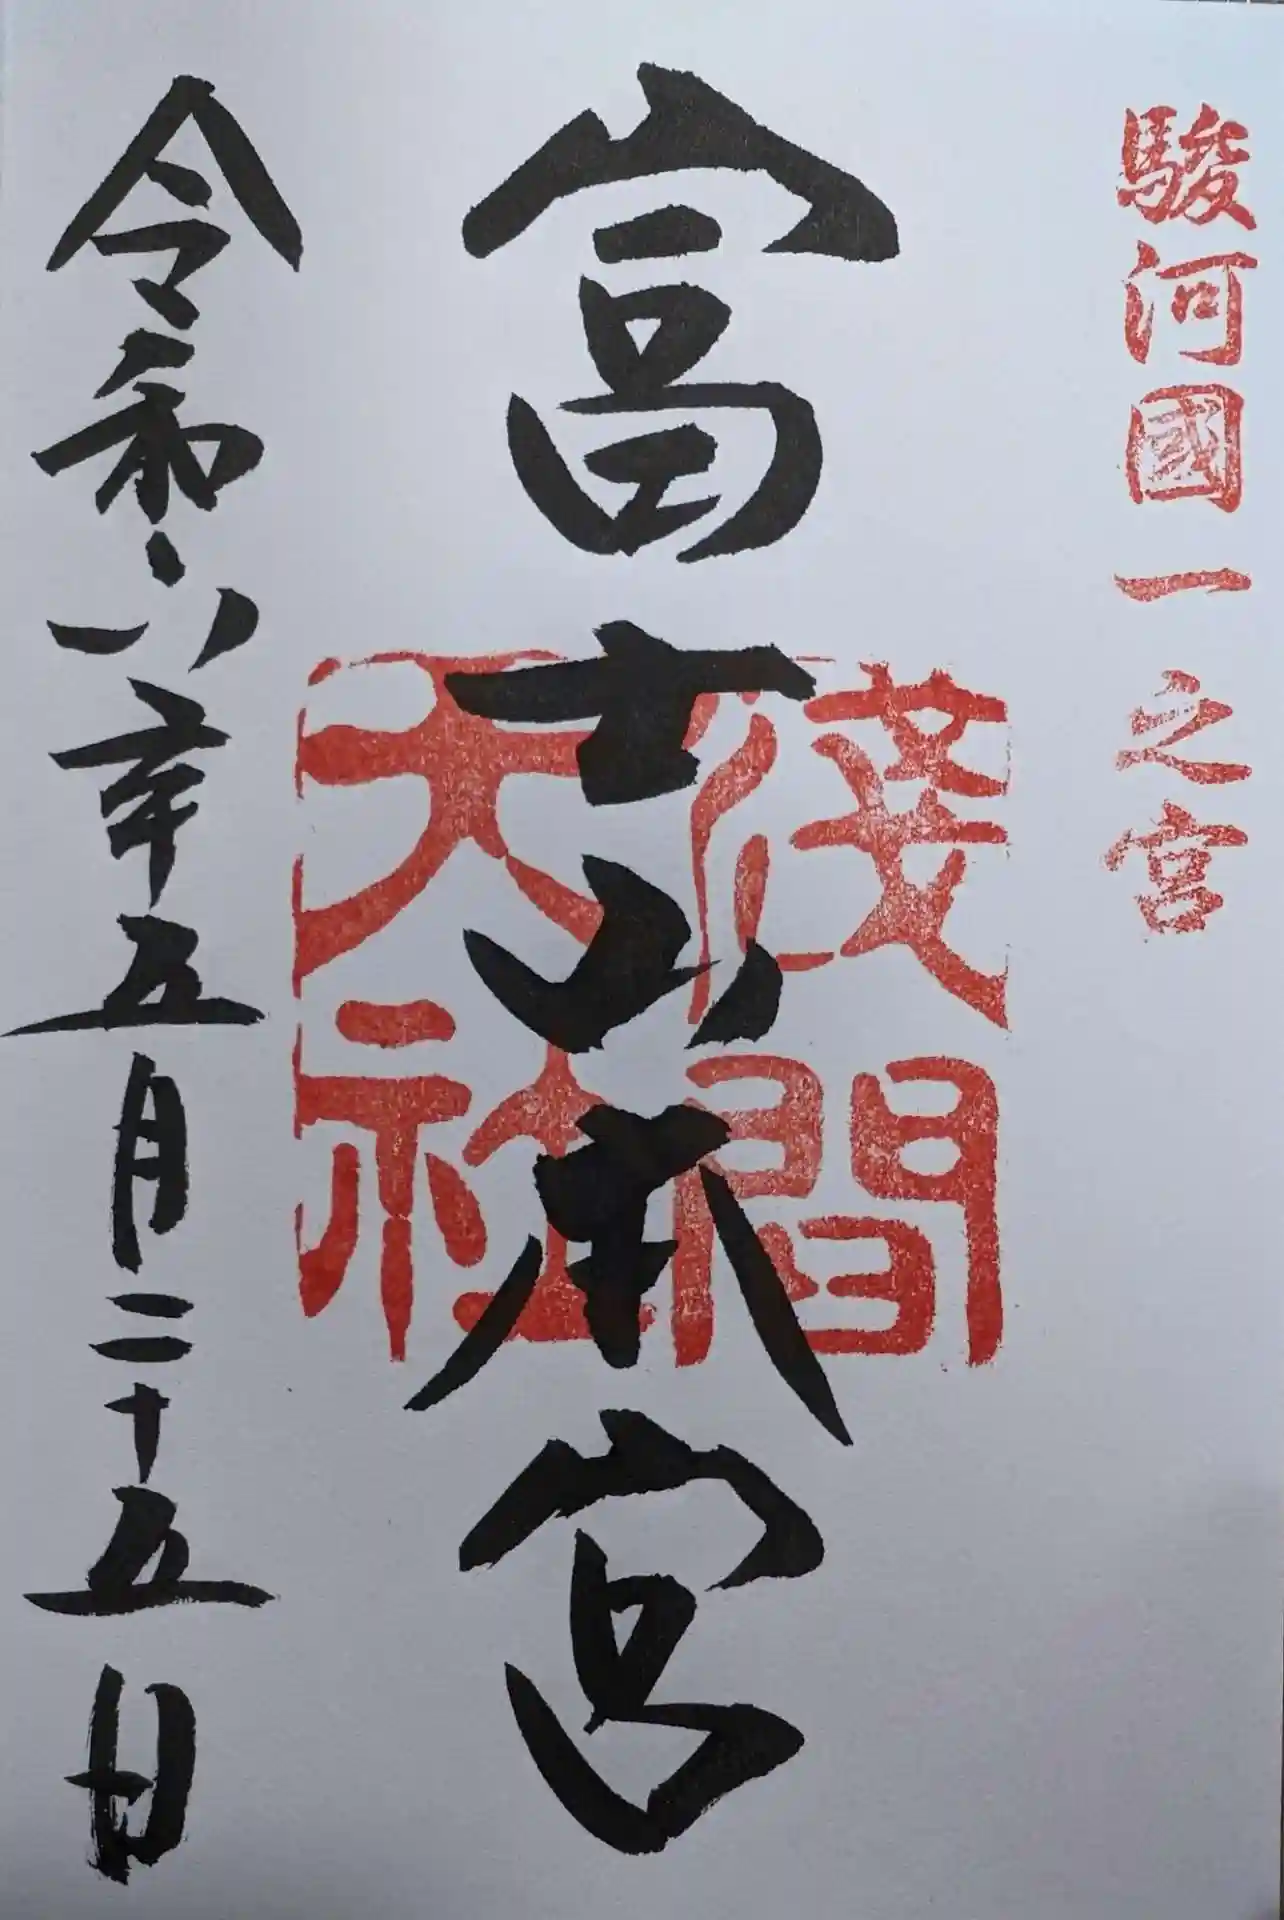 駿河國一之宮
富士山本宮
淺間
大社
令和六年五月二十五日